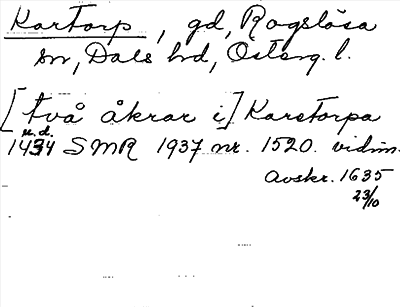 Kartorp, gd, Rogslösa
sn, Dals hd, Österg. l.
[två åkrar i] Karstorpa
u.d.
1434 SMR 1937 nr. 1520. vidim.
Avskr. 1635
23/10